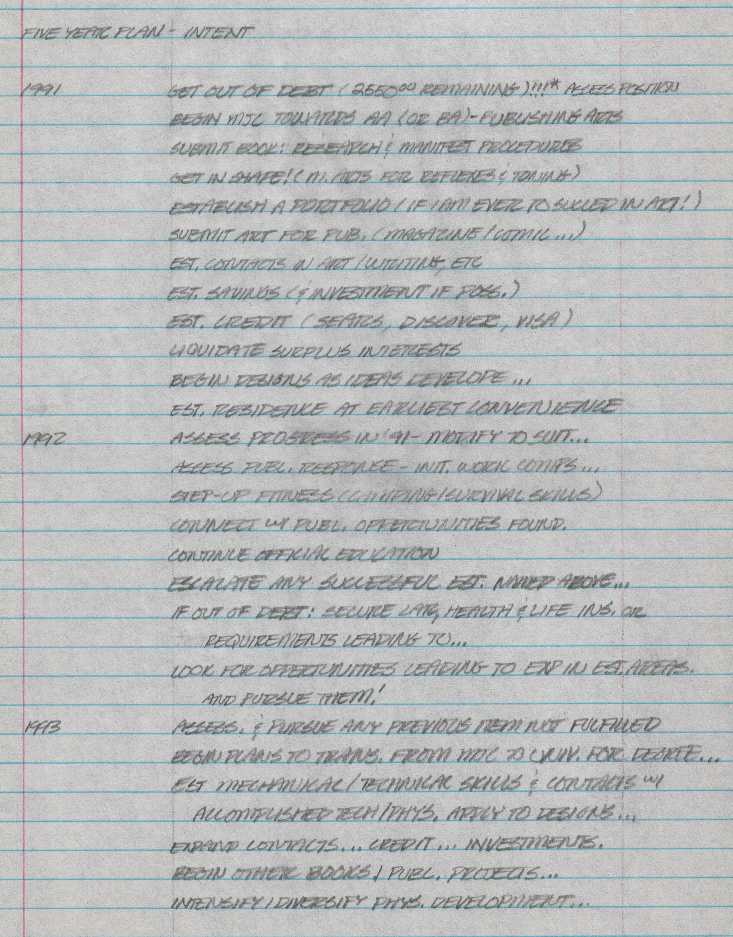 FIVE YEAR PLAN - INTENT
1991 GET OUT OF DEBT (2550⁰⁰ REMAINING)!!!* ASSES POSITION
BEGIN MJC TOWARDS AA (OR BA) - PUBLISHING ARTS
SUBMIT BOOK: RESEARCH & MANIFEST PROCEDURES
GET IN SHAPE! (M. ARTS FOR REFLEXES & TONING)
ESTABLISH A PORTFOLIO (IF I AM EVER TO SUCCED IN ART!)
SUBMIT ART FOR PUB. (MAGAZINE/COMIC...)
EST. CONTACTS IN ART/WRITING, ETC
EST. SAVINGS (& INVESTMENT IF POSS.)
EST. CREDIT (SEARS, DISCOVER, VISA)
LIQUIDATE SURPLUS INTERESTS
BEGIN DESIGNS AS IDEAS DEVELOPE...
EST. RESIDENCE AT EARLIEST CONVENIENCE
1992 ASSESS PROGRESS IN '91 - MOTIFY TO SUIT...
ASSESS PUBL. RESPONSE - INIT. WORK COMPS...
STEP-UP FITNESS (CAMPING/SURVIVAL SKILLS)
CONNECT W/ PUBL. OPPERTUNITIES FOUND.
CONTINUE OFFICIAL EDUCATION
ESCALATE ANY SUCCESSFUL EST. NAMED ABOVE...
IF OUT OF DEBT: SECURE CAR, HEALTH & LIFE INS. OR
REQUIREMENTS LEADING TO...
LOOK FOR OPPERTUNITIES LEADING TO EXP IN EST. AREAS.
AND PURSUE THEM!
1993 ASSESS. & PURSUE ANY PREVIOUS ITEM NOT FULFILLED
BEGIN PLANS TO TRANS. FROM MJC TO UNIV. FOR DEGREE...
EST MECHANICAL/TECHNICAL SKILLS & CONTACTS W/
ACCOMPLISHED TECH/PHYS. APPLY TO DESIGNS...
EXPAND CONTACTS... CREDIT... INVESTMENTS.
BEGIN OTHER BOOKS/PUBL. PROJECTS...
INTENSIFY/DIVERSIFY PHYS. DEVELOPMENT...